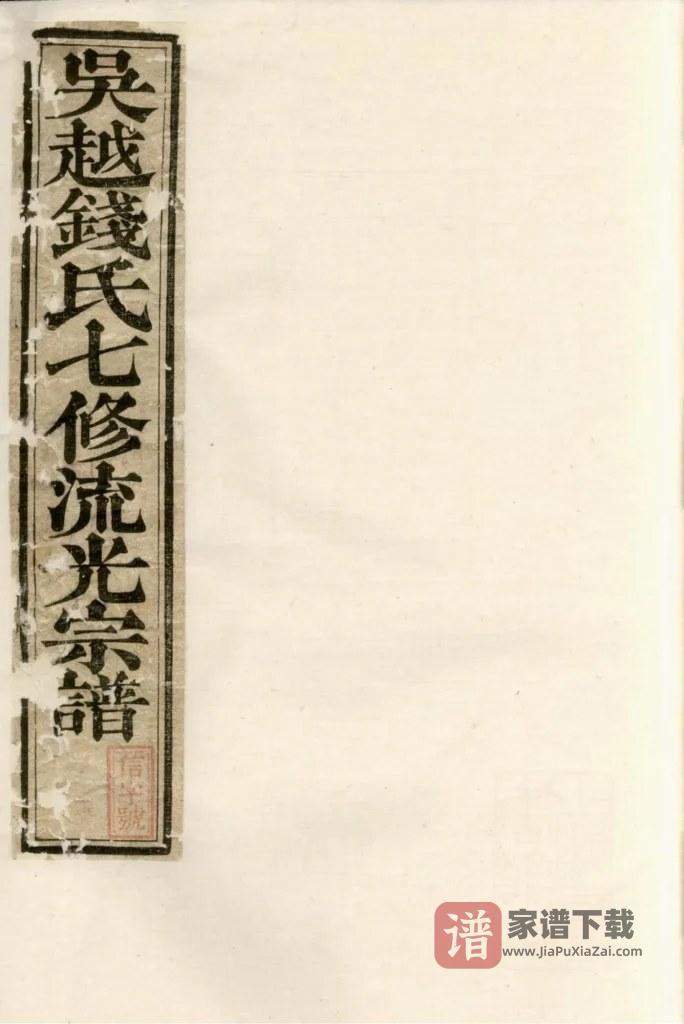 吳越錢氏七修流光宗譜
信字號
谱
家谱下载
www.JiaPuXiaZai.com